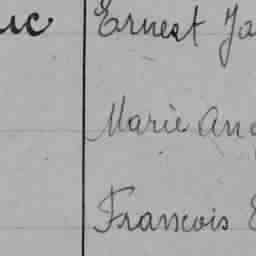 uc Ernest Ja
Marie Ang
François E